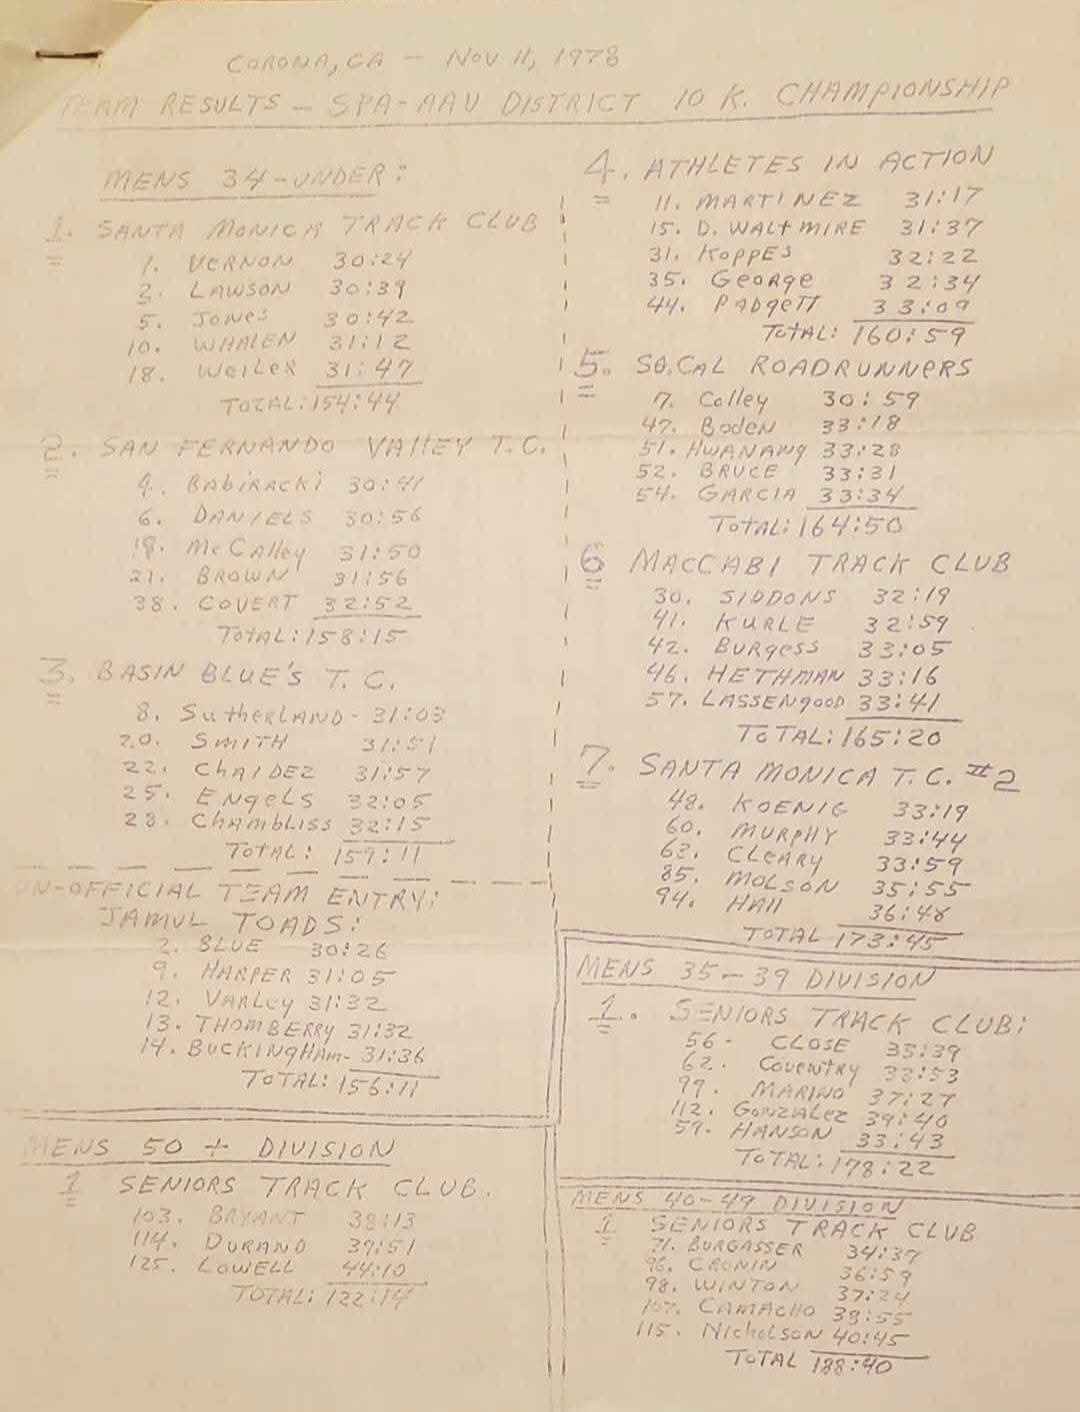 CORONA, CA - NOV 11, 1978
TEAM RESULTS - SPA-AAU DISTRICT 10 K. CHAMPIONSHIP
MENS 34-UNDER:
1. SANTA MONICA TRACK CLUB
1. VERNON 30:24
3. LAWSON 30:39
5. JONES 30:42
10. WHALEN 31:12
18. WEILER 31:47
TOTAL: 154:44
2. SAN FERNANDO VALLEY T.C.
4. BABIRACKI 30:41
6. DANIELS 30:56
19. McCAlley 31:50
21. BROWN 31:56
38. COVERT 32:52
TOTAL: 158:15
3. BASIN BLUE'S T.C.
8. SUTHERLAND - 31:03
20. SMITH 31:51
22. CHAIDEZ 31:57
25. ENGELS 32:05
28. CHAMBLISS 32:15
TOTAL: 159:11
UN-OFFICIAL TEAM ENTRY:
JAMUL TOADS:
2. BLUE 30:26
9. HARPER 31:05
12. VARLEY 31:32
13. THOMBERRY 31:32
14. BUCKINGHAM - 31:36
TOTAL: 156:11
MENS 50 + DIVISION
1 SENIORS TRACK CLUB.
103. BRYANT 38:13
114. DURAND 39:51
125. LOWELL 44:10
TOTAL: 122:14
4. ATHLETES IN ACTION
11. MARTINEZ 31:17
15. D. WALTMIRE 31:37
31. KOPPES 32:22
35. GEORGE 32:34
44. PADGETT 33:09
TOTAL: 160:59
5. SO.CAL ROADRUNNERS
7. Colley 30:59
47. BODEN 33:18
51. HWANANG 33:28
52. BRUCE 33:31
54. GARCIA 33:34
TOTAL: 164:50
6 MACCABI TRACK CLUB
30. SIDDONS 32:19
41. KURLE 32:59
42. BURGESS 33:05
46. HETHMAN 33:16
57. LASSENGOOD 33:41
TOTAL: 165:20
7. SANTA MONICA T.C. #2
48. KOENIG 33:19
60. MURPHY 33:44
63. CLEARY 33:59
85. MOLSON 35:55
94. HAll 36:48
TOTAL 173:45
MENS 35-39 DIVISION
1. SENIORS TRACK CLUB:
56 - CLOSE 33:39
62. COVENTRY 33:53
99. MARINO 37:27
112. GONZALEZ 39:40
59. HANSON 33:43
TOTAL: 178:22
MENS 40-49 DIVISION
1 SENIORS TRACK CLUB
71. BURGASSER 34:37
96. CRONIN 36:59
98. WINTON 37:24
107. CAMACHO 38:55
115. NICHOLSON 40:45
TOTAL 188:40